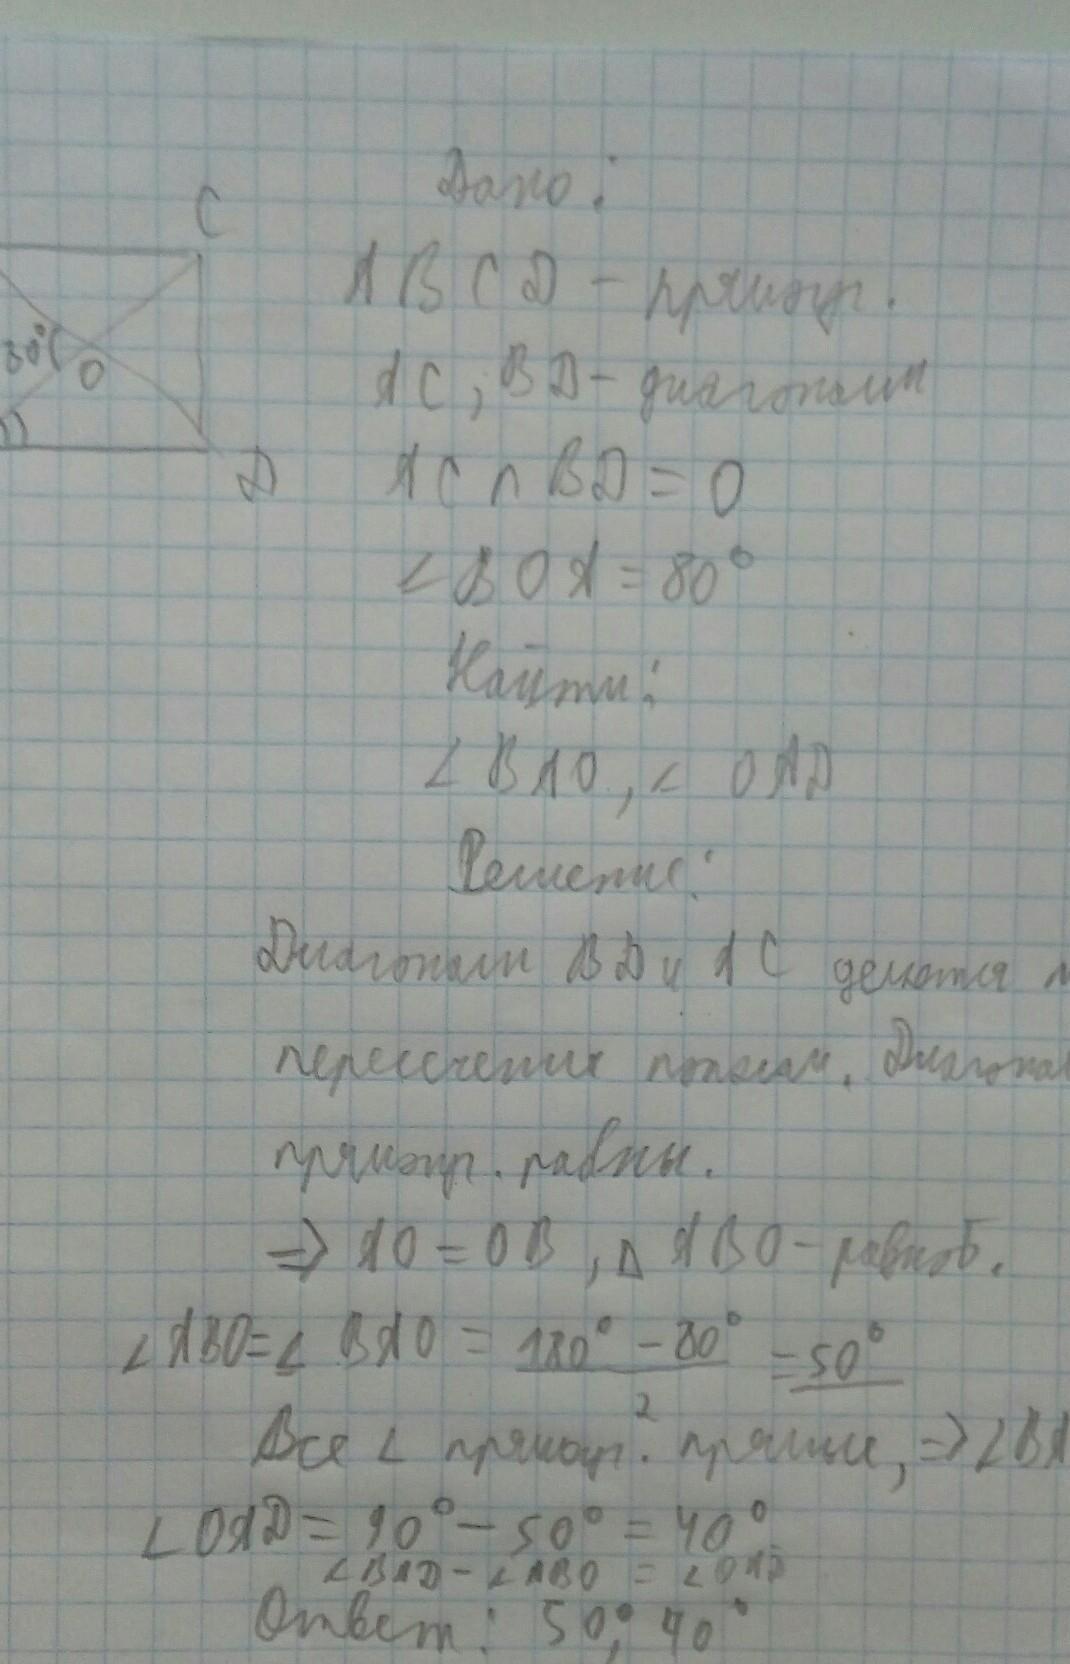 Дано:
C
ABCD - прямоуг.
80°
O
AC; BD - диагонали
D
AC ∩ BD = O
∠BOA = 80°
Найти:
∠BAO, ∠ OAD
Решение:
Диагонали BD и AC делятся
пересечения пополам. Диагона
прямоуг. равны.
=> AO = OB, Δ ABO - равноб.
∠ABO = ∠ BAO = 180° - 80° / 2 = 50°
Все ∠ прямоуг. прямые, => ∠BA
∠OAD = 90° - 50° = 40°
∠BAD - ∠ABO = ∠OAD
Ответ: 50°; 40°